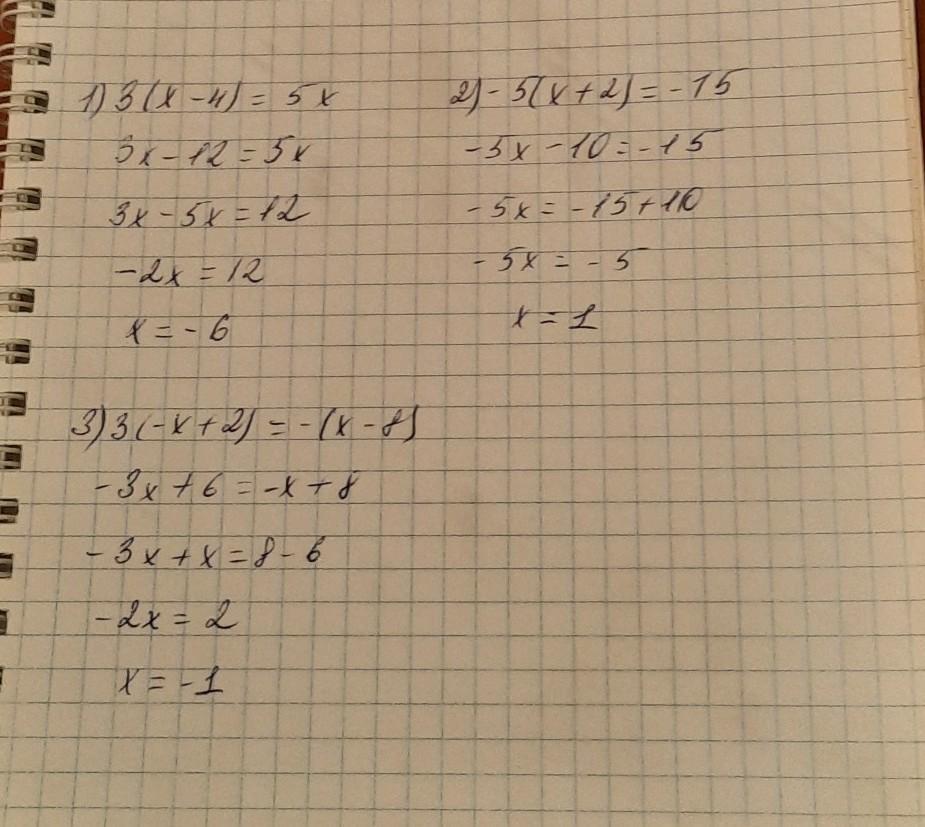 1) 3(x-4) = 5x
3x-12=5x
3x-5x=12
-2x=12
x=-6
2) -5(x+2)=-15
-5x-10=-15
-5x=-15+10
-5x=-5
x=1
3) 3(-x+2) = -(x-8)
-3x+6=-x+8
-3x+x=8-6
-2x=2
x=-1